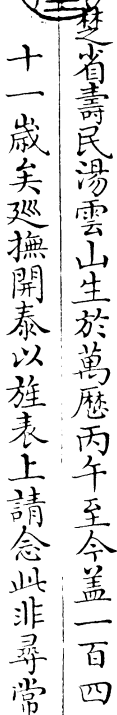 楚省壽民湯雲山生於萬歷丙午至今盖一百四
十一歲矣廵撫開泰以旌表上請念此非尋常